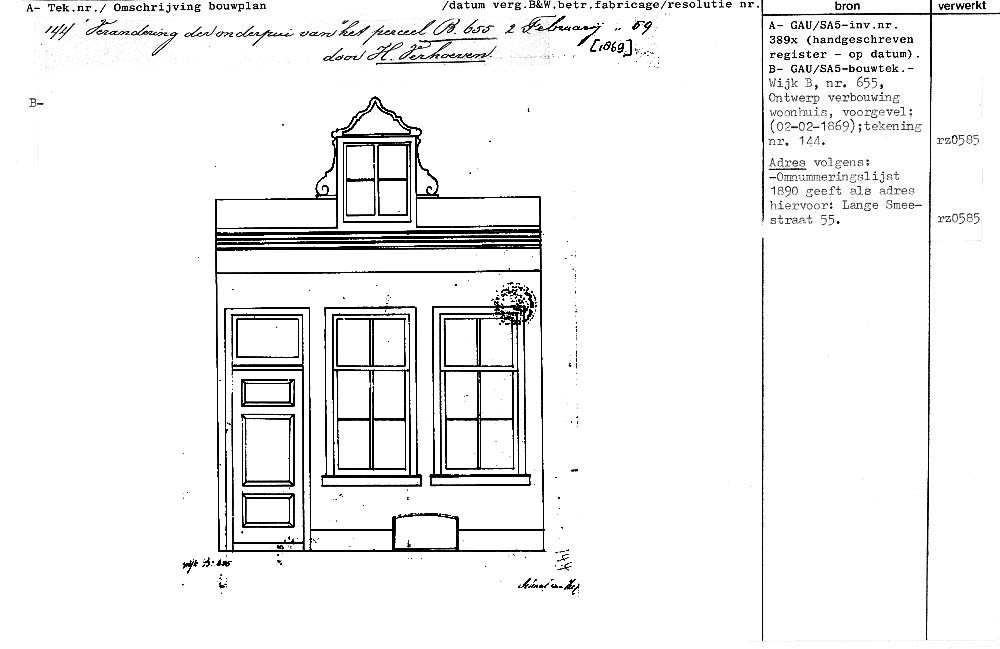 A- Tek.nr./ Omschrijving bouwplan /datum verg.B&W,betr.fabricage/resolutie nr.
bron
verwerkt
144 Verandering der onderpui van het perceel B. 655 2 Februarij „ 69
[1869]
door H. Verhoeven
B-
A- GAU/SA5-inv.nr.
389x (handgeschreven
register - op datum).
B- GAU/SA5-bouwtek.-
Wijk B, nr. 655,
Ontwerp verbouwing
woonhuis, voorgevel;
(02-02-1869);tekening
nr. 144.
rz0585
Adres volgens:
-Omnummeringslijst
1890 geeft als adres
hiervoor: Lange Smee-
straat 55.
rz0585
wijk B. 655